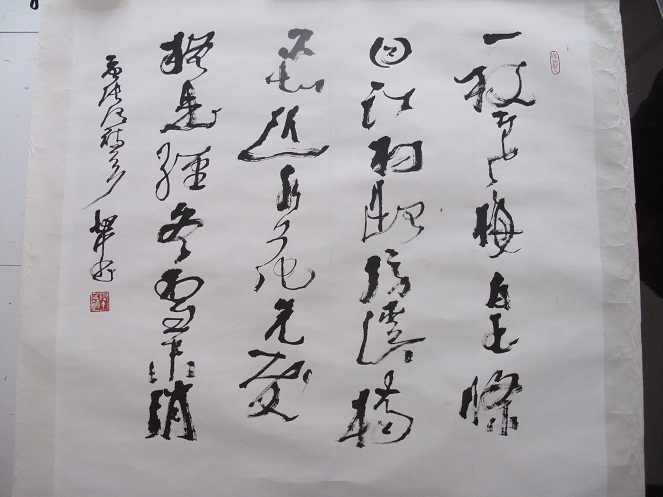 一树寒梅白玉條
迥临村路傍溪橋
不知近水花先發
疑是經冬雪未銷